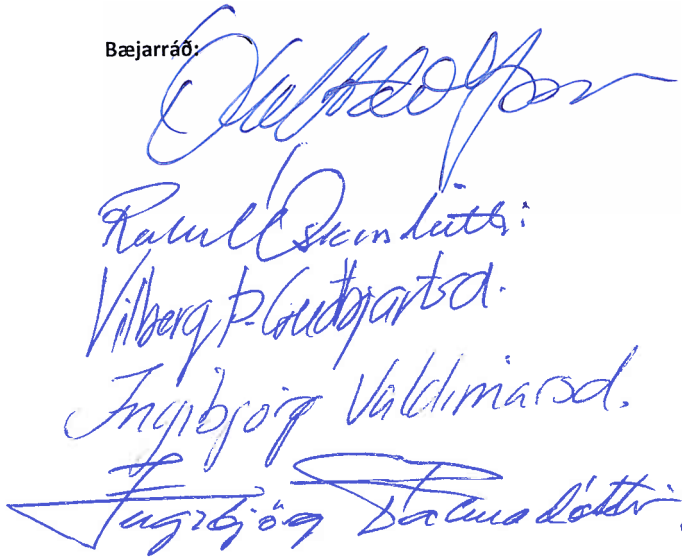 Bæjarráð:
Rakel Óskarsdóttir
Vilborg Þ. Guðbjartsd.
Ingibjörg Valdimarsd.
Ingibjörg Pálmadóttir